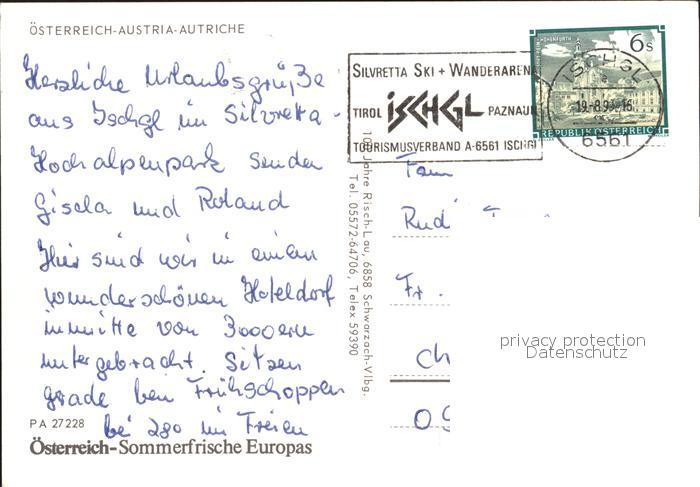 ÖSTERREICH-AUSTRIA-AUTRICHE
Herzliche Urlaubsgrüße
aus Ischgl im Silvretta-
Hochalpenpark senden
Gisela und Roland
Hier sind wir in einem
wunderschönen Hoteldorf
inmitte von 3000ern
untergebracht. Sitzen
grade ben Frühschoppen
bei 28° im Freien
PA 27228
Österreich-Sommerfrische Europas
100 Jahre Risch-Lau, 6858 Schwarzach-Vlbg.
Tel. 05572-64706, Telex 59390
SILVRETTA SKI + WANDERAREN
TIROL ISCHGL PAZNAUN
TOURISMUSVERBAND A-6561 ISCHGL
6s
REPUBLIK ÖSTERREICH
ISCHGL
6561
Fam
Rudi
Fr.
Ch
privacy protection
Datenschutz